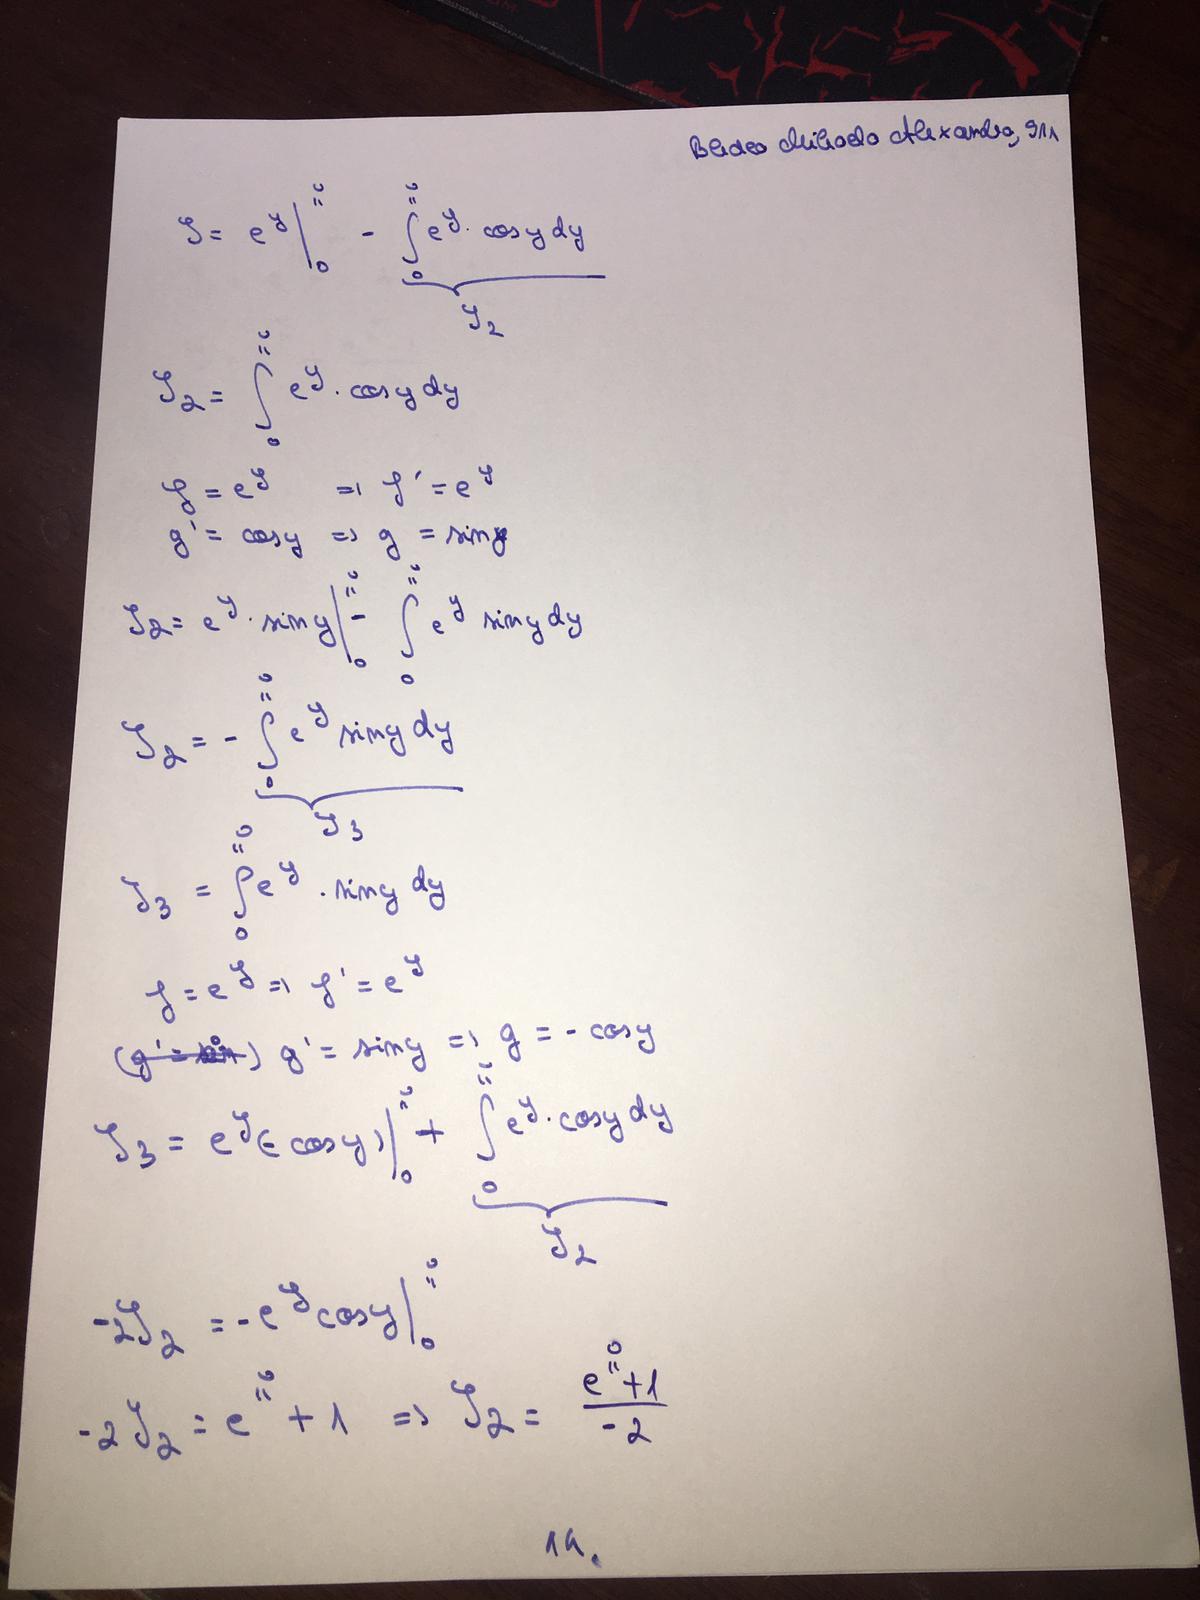 Alexandra, 911
J = e^y |_0^π - ∫_0^π e^y · cosy dy
J2
J2 = ∫_0^π e^y · cosy dy
f = e^y => f' = e^y
g' = cosy => g = siny
J2 = e^y · siny |_0^π - ∫_0^π e^y siny dy
J2 = - ∫_0^π e^y siny dy
J3
J3 = ∫_0^π e^y · siny dy
f = e^y => f' = e^y
g' = siny => g = - cosy
J3 = e^y (- cosy) |_0^π + ∫_0^π e^y · cosy dy
J2
-2J2 = - e^y cosy |_0^π
-2J2 = e^π + 1 => J2 = (e^π + 1)/(-2)
14.